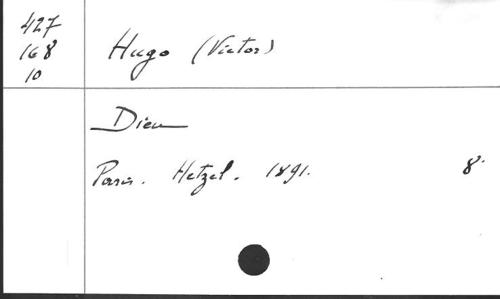 427
168
10
Hugo (Victor)
Dieu
Paris. Hetzel. 1891. 8°